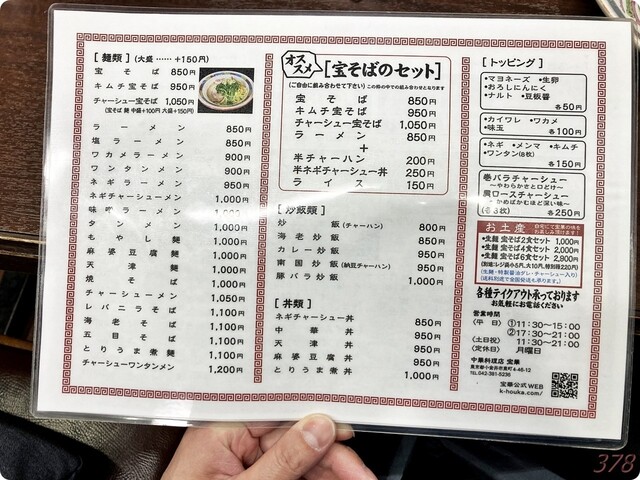 [麺類] (大盛……+150円)
宝そば 850円
キムチ宝そば 950円
チャーシュー宝そば 1,050円
(宝そば麺 中盛+100円 大盛+150円)
ラーメン 850円
塩ラーメン 850円
ワカメラーメン 900円
ワンタンメン 900円
ネギラーメン 950円
ネギチャーシューメン 1,000円
味噌ラーメン 1,000円
タンメン 1,000円
もやし麺 1,000円
麻婆豆腐麺 1,000円
天津麺 1,000円
焼そば 1,000円
チャーシューメン 1,050円
レバニラそば 1,100円
海老そば 1,100円
五目そば 1,100円
とりうま煮麺 1,100円
チャーシューワンタンメン 1,200円
オススメ [宝そばのセット]
(ご自由に組み合わせて下さい) この枠の中での組み合わせとなります
宝そば 850円
キムチ宝そば 950円
チャーシュー宝そば 1,050円
ラーメン 850円
+
半チャーハン 200円
半ネギチャーシュー丼 250円
ライス 150円
[炒飯類]
炒飯(チャーハン) 800円
海老炒飯 850円
カレー炒飯 950円
南国炒飯(納豆チャーハン) 950円
豚バラ炒飯 950円
[丼類]
ネギチャーシュー丼 850円
中華丼 950円
天津丼 950円
麻婆豆腐丼 950円
とりうま煮丼 1,000円
[トッピング]
•マヨネーズ •生卵
•おろしにんにく
•ナルト •豆板醤
各50円
•カイワレ •ワカメ
•味玉 各100円
•ネギ •メンマ •キムチ
•ワンタン(8枚)
各150円
巻バラチャーシュー
〜やわらかさと口どけ〜
肩ロースチャーシュー
〜かめばかむほど深い味〜
(各3枚) 各250円
お土産 自宅にて宝華の味をお楽しみ頂けます!
•生麺 宝そば2食セット 1,000円
•生麺 宝そば4食セット 2,000円
•生麺 宝そば6食セット 2,900円
(別途:レジ袋小5円、大10円、特別袋220円)
(生麺・特製醤油ダレ・チャーシュー入り)
(送料別途で全国発送も承ります。)
各種テイクアウト承っております
お気軽にお電話ください
営業時間
〈平 日〉①11:30〜15:00
②17:30〜21:00
〈土日祝〉 11:30〜21:00
〈定休日〉 月曜日
中華料理店 宝華
東京都小金井市東町4-46-12
TEL.042-381-5236
宝華公式WEB
k-houka.com/
378